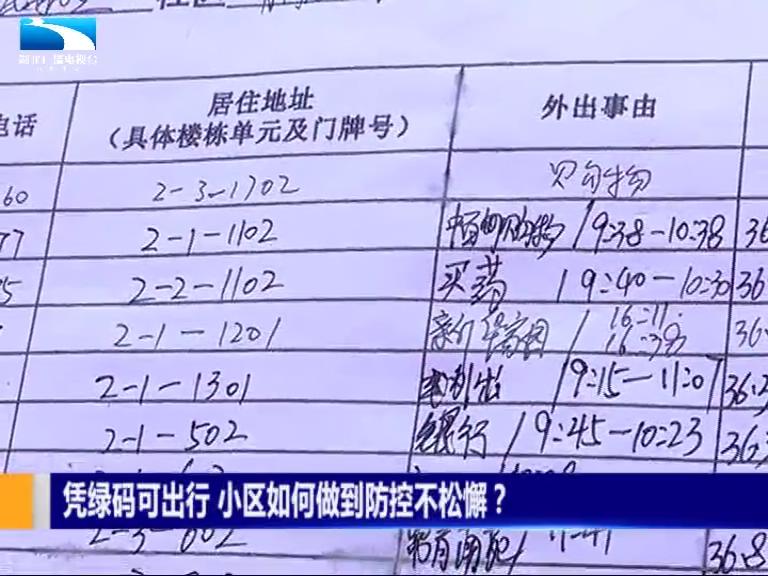 湖北广播电视台
电话 居住地址 外出事由
（具体楼栋单元及门牌号）
60 2-3-1702 购物
77 2-1-1102 中百购物 / 9:38-10:38 36
5 2-2-1102 买药 / 9:40-10:30 36
2-1-1201 / 16:11- 36.
16:38
2-1-1301 / 9:15-11:07 36.
2-1-502 银行 / 9:45-10:23 36.
凭绿码可出行 小区如何做到防控不松懈？
2-3-602 36.8